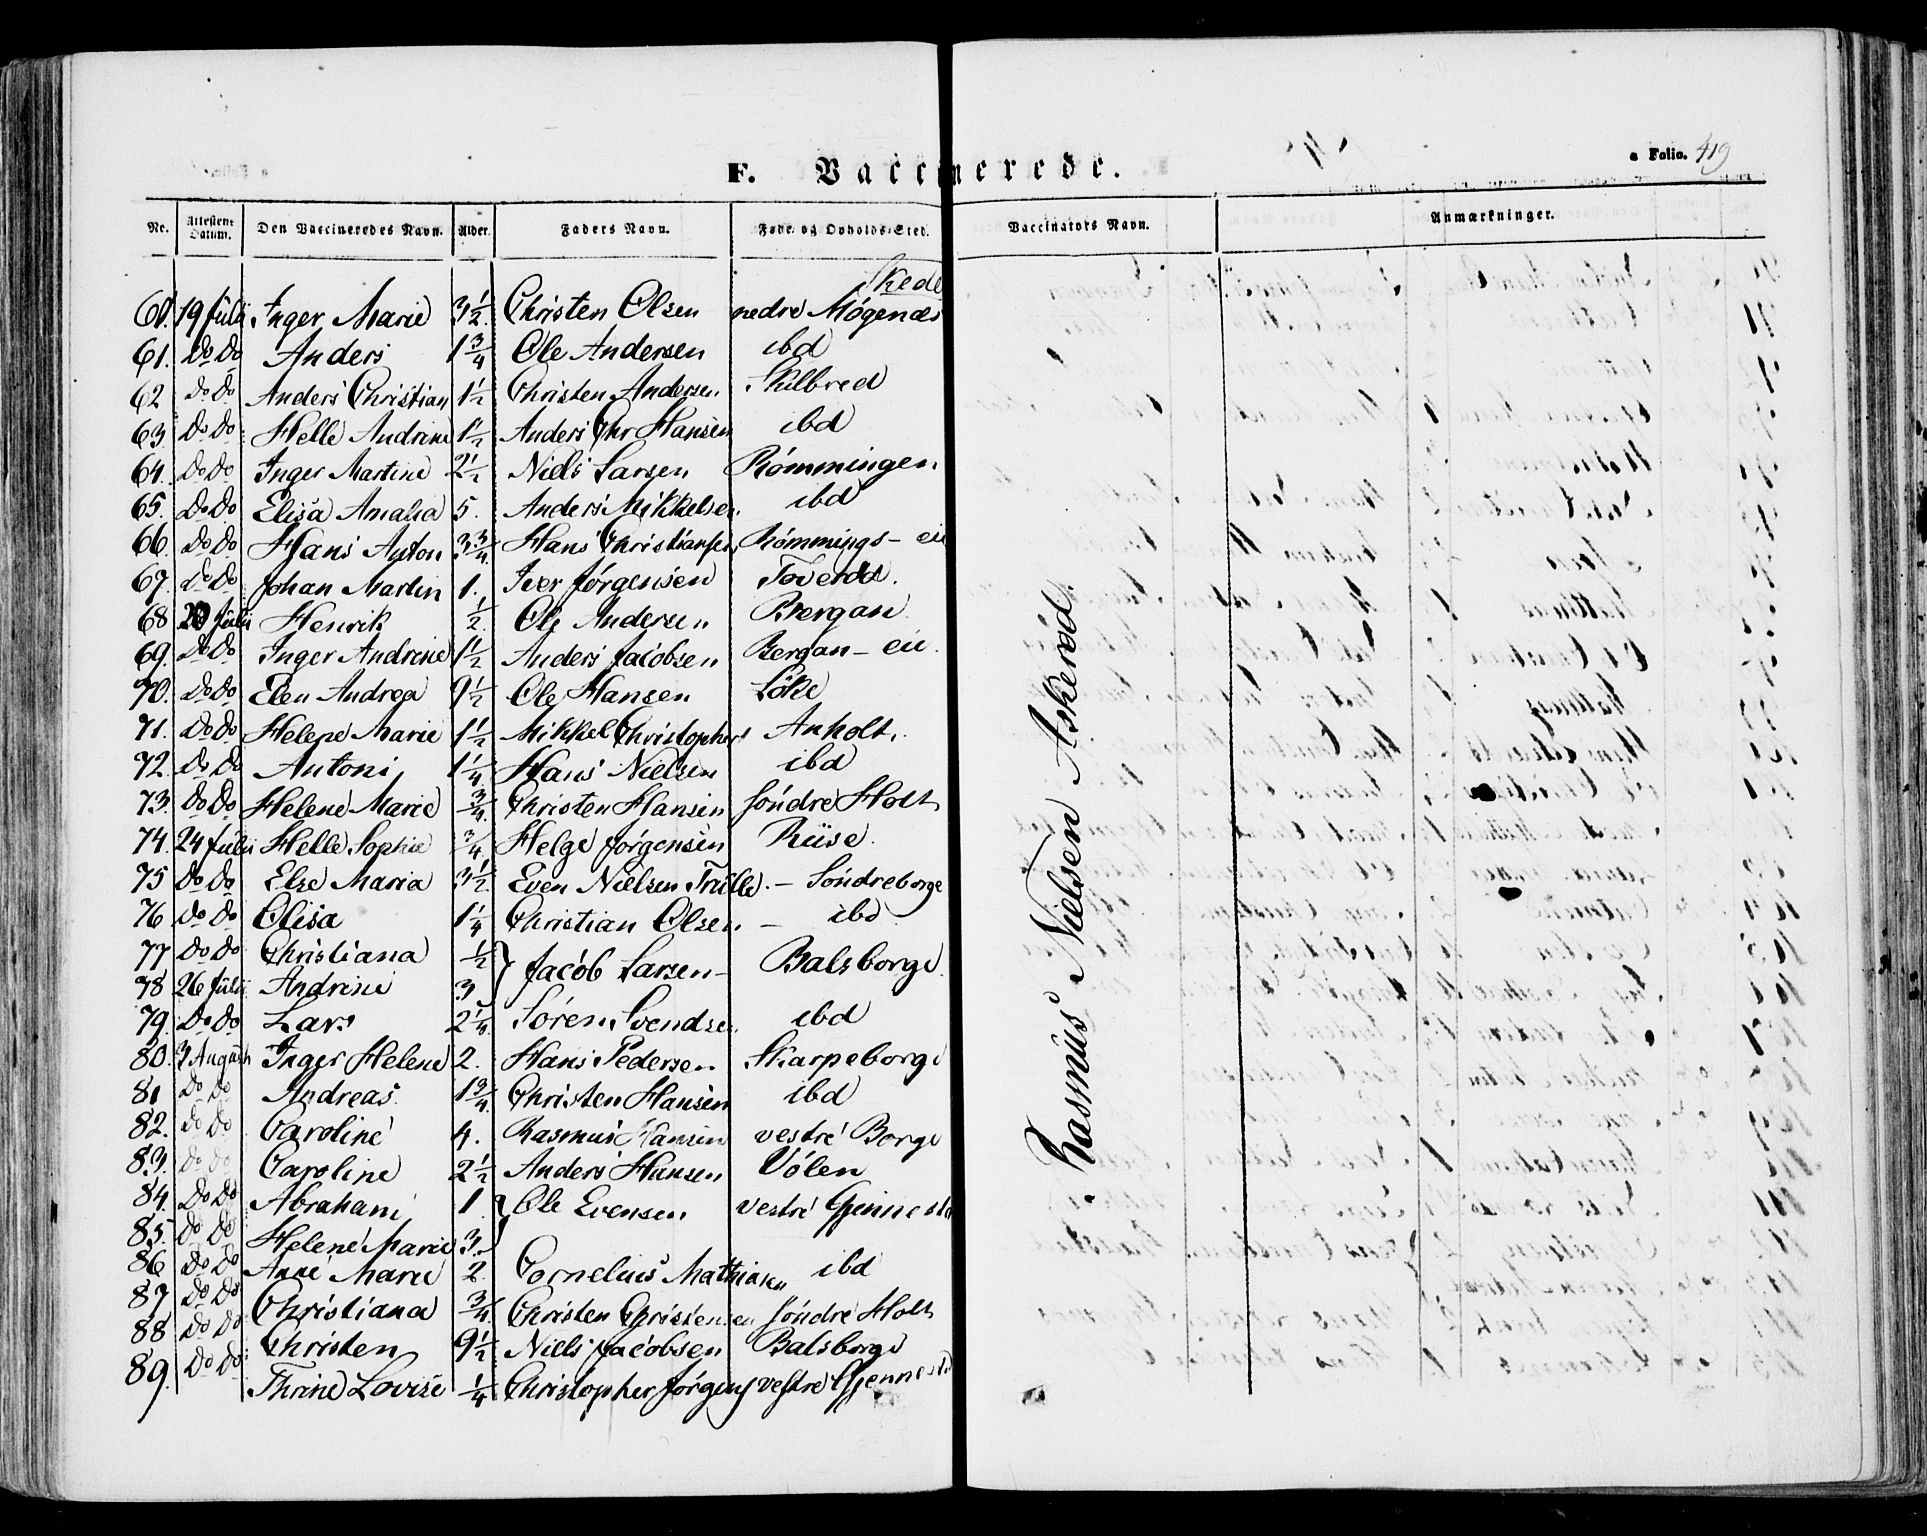 F. Vaccinerede.
Folio. 419
Nr. Attestens Datum. Den Vaccineredes Navn. Alder. Faders Navn. Føde og Opholds-Sted. Vaccinators Navn. Anmærkninger.
Skede
60. 19 Julii Inger Marie 3½ Christen Olsen nedre Mógenæs
61. Do Do Anders 1¾ Ole Andersen ibd
62 Do Do Anders Christian 1½ Christen Andersen Skilbred
63. Do Do Helle Andrine 1½ Anders Chr Hansen ibd
64. Do Do Inger Martine 2½ Niels Larsen Rómmingen
65. Do Do Elisa Amalia 5. Anders Mikkelsen ibd
66. Do Do Hans Anton 3¾ Hans Christiansen Rómmings- eie
67. Do Do Johan Martin 1. Iver Jórgensen
68 20 Julii Henrik ½ Ole Andersen Bergan
69. Do Do Inger Andrine 1½ Anders Jacobsen Bergan - eie
70. Do Do Elen Andrea 9½ Ole Hansen Lóke
71. Do Do Helene Marie 1½ Mikkel Christophers Anholt.
72. Do Do Antoni 1¼ Hans Nielsen ibd
73. Do Do Helene Marie ¾ Christen Hansen Sóndre Holt
74. 24 Julii Helle Sophie ¾ Helge Jórgensen Riise.
75 Do Do Else Maria 3½ Even Nielsen - Sóndreborge
76 Do Do Elisa 1¼ Christian Olsen - ibd
77 Do Do Christiana ½ } Jacob Larsen - Balsborge
78 26 Julii Andrine 3
79. Do Do Lars 2¼ Sóren Svendsen ibd
80. 3 August Inger Helene 2. Hans Pedersen Skarpeborge
81 Do Do Andreas. 1¾ Christen Hansen ibd
82. Do Do Caroline 4. Rasmus Hansen vestre Borge
83. Do Do Caroline 2½ Anders Hansen Vólen
84. Do Do Abraham 1 } Ole Evensen vestre Gjennestad
85. Do Do Helene Marie 3.
86 Do Do Anne Marie 2 Cornelius Mathiasen ibd
87 Do Do Christiana ¾ Christen Christensen Sóndre Holt
88 Do Do Christen 9½ Niels Jacobsen Balsborge
89. Do Do Thrine Lovise ¼ Christopher Jórgens vestre Gjennestad
Rasmus Nielsen Askeród